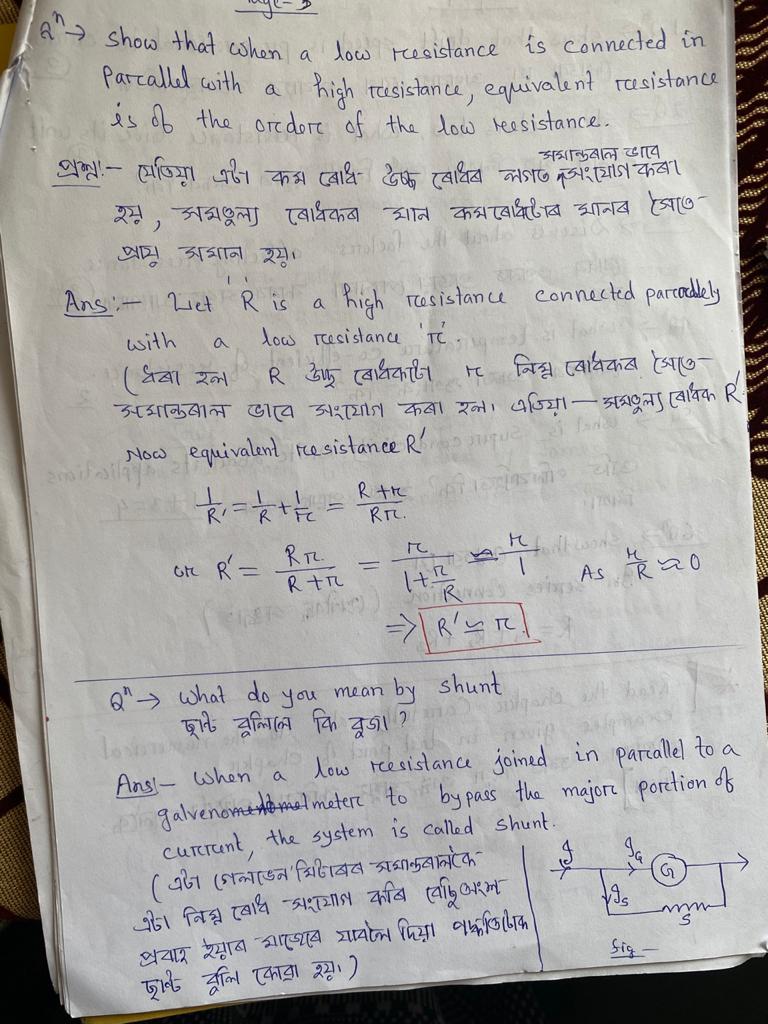 Page-3
Qⁿ → Show that when a low resistance is connected in
Parallel with a high resistance, equivalent resistance
is of the order of the low resistance.
প্ৰশ্ন:- যেতিয়া এটা কম ৰোধ উচ্চ ৰোধৰ লগত সমান্তৰাল ভাবে সংযোগ কৰা
হয়, সমতুল্য ৰোধকৰ মান কমৰোধটোৰ মানৰ সৈতে
প্ৰায় সমান হয়।
Ans:- Let 'R' is a high resistance connected parallely
with a low resistance 'r'.
(ধৰা হল R উচ্চ ৰোধকটো r নিম্ন ৰোধকৰ সৈতে
সমান্তৰাল ভাবে সংযোগ কৰা হল। এতিয়া — সমতুল্য ৰোধক R'
Now equivalent resistance R'
1/R' = 1/R + 1/r = (R+r)/(Rr).
or R' = Rr/(R+r) = r/(1+r/R) ≃ r/1 As r/R ≈ 0
⇒ R' ≃ r.
Qⁿ → What do you mean by shunt
ছান্ট বুলিলে কি বুজা?
Ans:- When a low resistance joined in parallel to a
galvenometer to bypass the major portion of
current, the system is called shunt.
(এটা গেলভেন'মিটাৰৰ সমান্তৰালকৈ
এটা নিম্ন ৰোধ সংযোগ কৰি বেছিঅংশ
প্ৰবাহ ইয়াৰ মাজেৰে যাবলৈ দিয়া পদ্ধতিটোক
ছান্ট বুলি কোৱা হয়।)
I I_G G
I_S
S
fig —